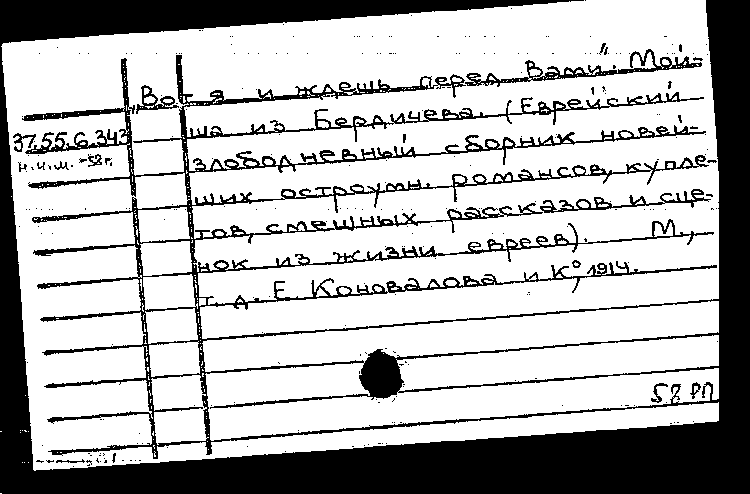 „Вот я и ждешь перед Вами". Мой-
37.55.6.343
ша из Бердичева. (Еврейский
н.и.м. -58 г.
злободневный сборник новей-
ших остроумн. романсов, купле-
тов, смешных рассказов и сце-
нок из жизни евреев). М.,
т. д. Е. Коновалова и К°, 1914.
58 РП